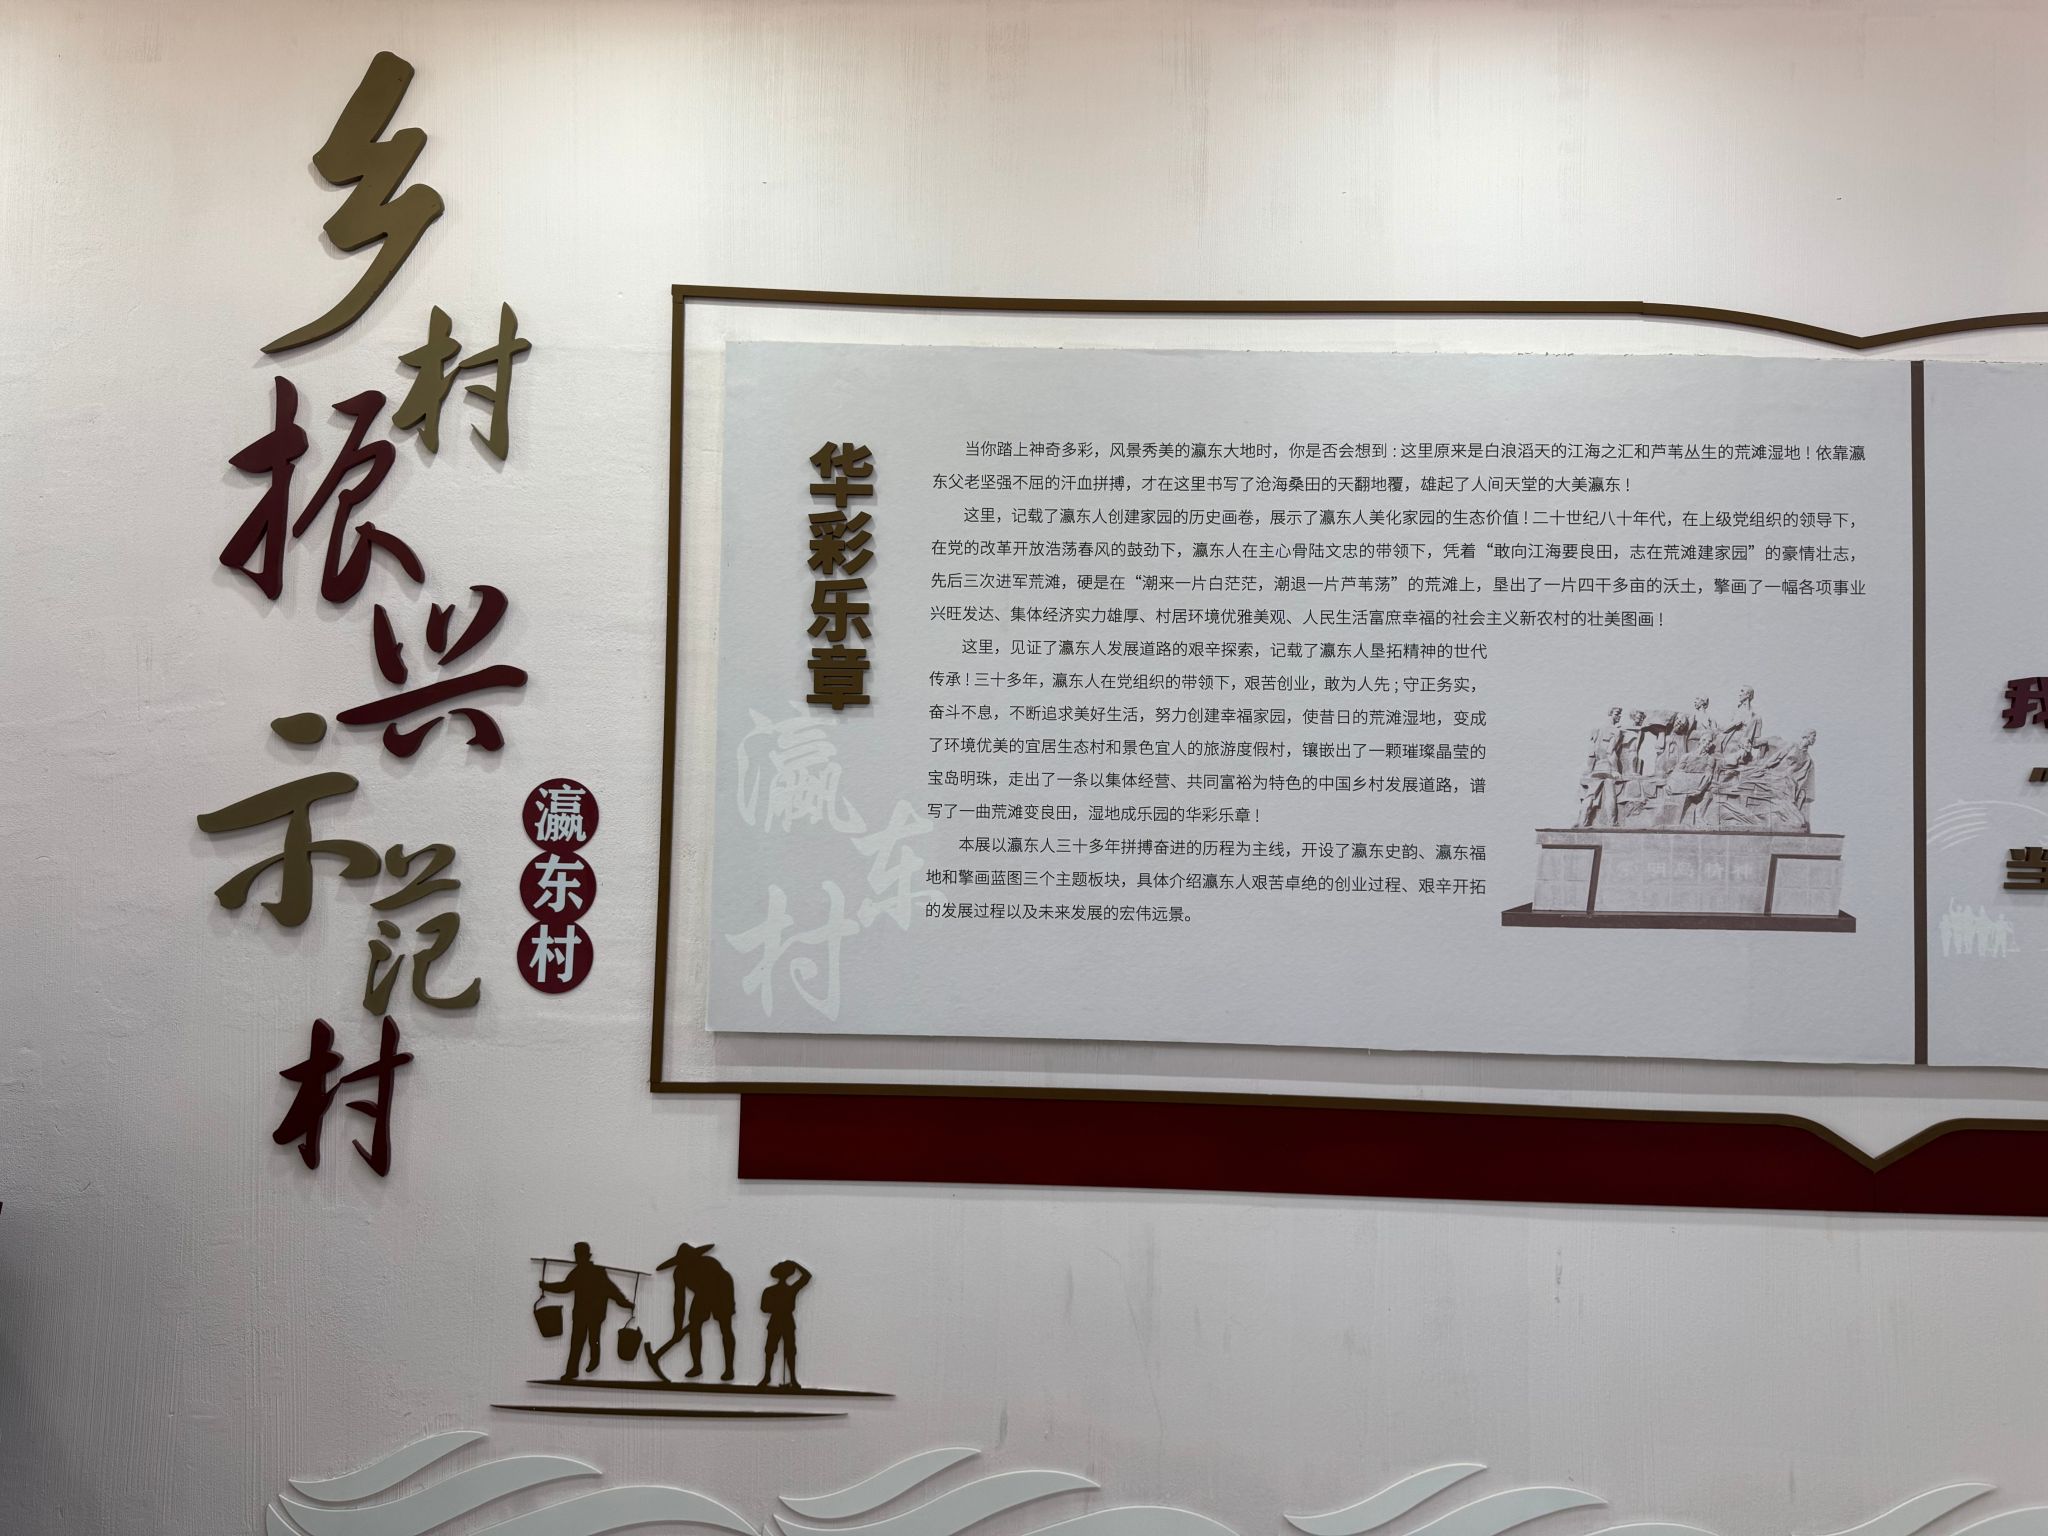 乡村
振兴
示范
村
瀛东村
华彩乐章
当你踏上神奇多彩，风景秀美的瀛东大地时，你是否会想到：这里原来是白浪滔天的江海之汇和芦苇丛生的荒滩湿地！依靠瀛
东父老坚强不屈的汗血拼搏，才在这里书写了沧海桑田的天翻地覆，雄起了人间天堂的大美瀛东！
这里，记载了瀛东人创建家园的历史画卷，展示了瀛东人美化家园的生态价值！二十世纪八十年代，在上级党组织的领导下，
在党的改革开放浩荡春风的鼓劲下，瀛东人在主心骨陆文忠的带领下，凭着“敢向江海要良田，志在荒滩建家园”的豪情壮志，
先后三次进军荒滩，硬是在“潮来一片白茫茫，潮退一片芦苇荡”的荒滩上，垦出了一片四千多亩的沃土，擎画了一幅各项事业
兴旺发达、集体经济实力雄厚、村居环境优雅美观、人民生活富庶幸福的社会主义新农村的壮美图画！
这里，见证了瀛东人发展道路的艰辛探索，记载了瀛东人垦拓精神的世代
传承！三十多年，瀛东人在党组织的带领下，艰苦创业，敢为人先；守正务实，
奋斗不息，不断追求美好生活，努力创建幸福家园，使昔日的荒滩湿地，变成
了环境优美的宜居生态村和景色宜人的旅游度假村，镶嵌出了一颗璀璨晶莹的
宝岛明珠，走出了一条以集体经营、共同富裕为特色的中国乡村发展道路，谱
写了一曲荒滩变良田，湿地成乐园的华彩乐章！
本展以瀛东人三十多年拼搏奋进的历程为主线，开设了瀛东史韵、瀛东福
地和擎画蓝图三个主题板块，具体介绍瀛东人艰苦卓绝的创业过程、艰辛开拓
的发展过程以及未来发展的宏伟远景。
瀛东村
我
当